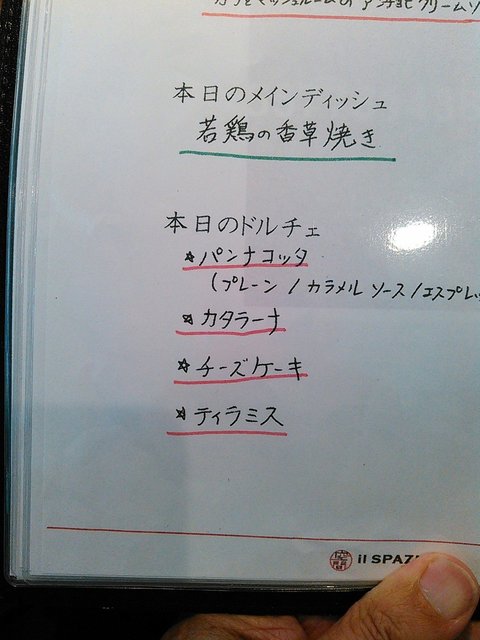 アンチョビクリームソ
本日のメインディッシュ
若鶏の香草焼き
本日のドルチェ
☆パンナコッタ
(プレーン / カラメルソース / エスプレッ
☆カタラーナ
☆チーズケーキ
☆ティラミス
il SPAZ